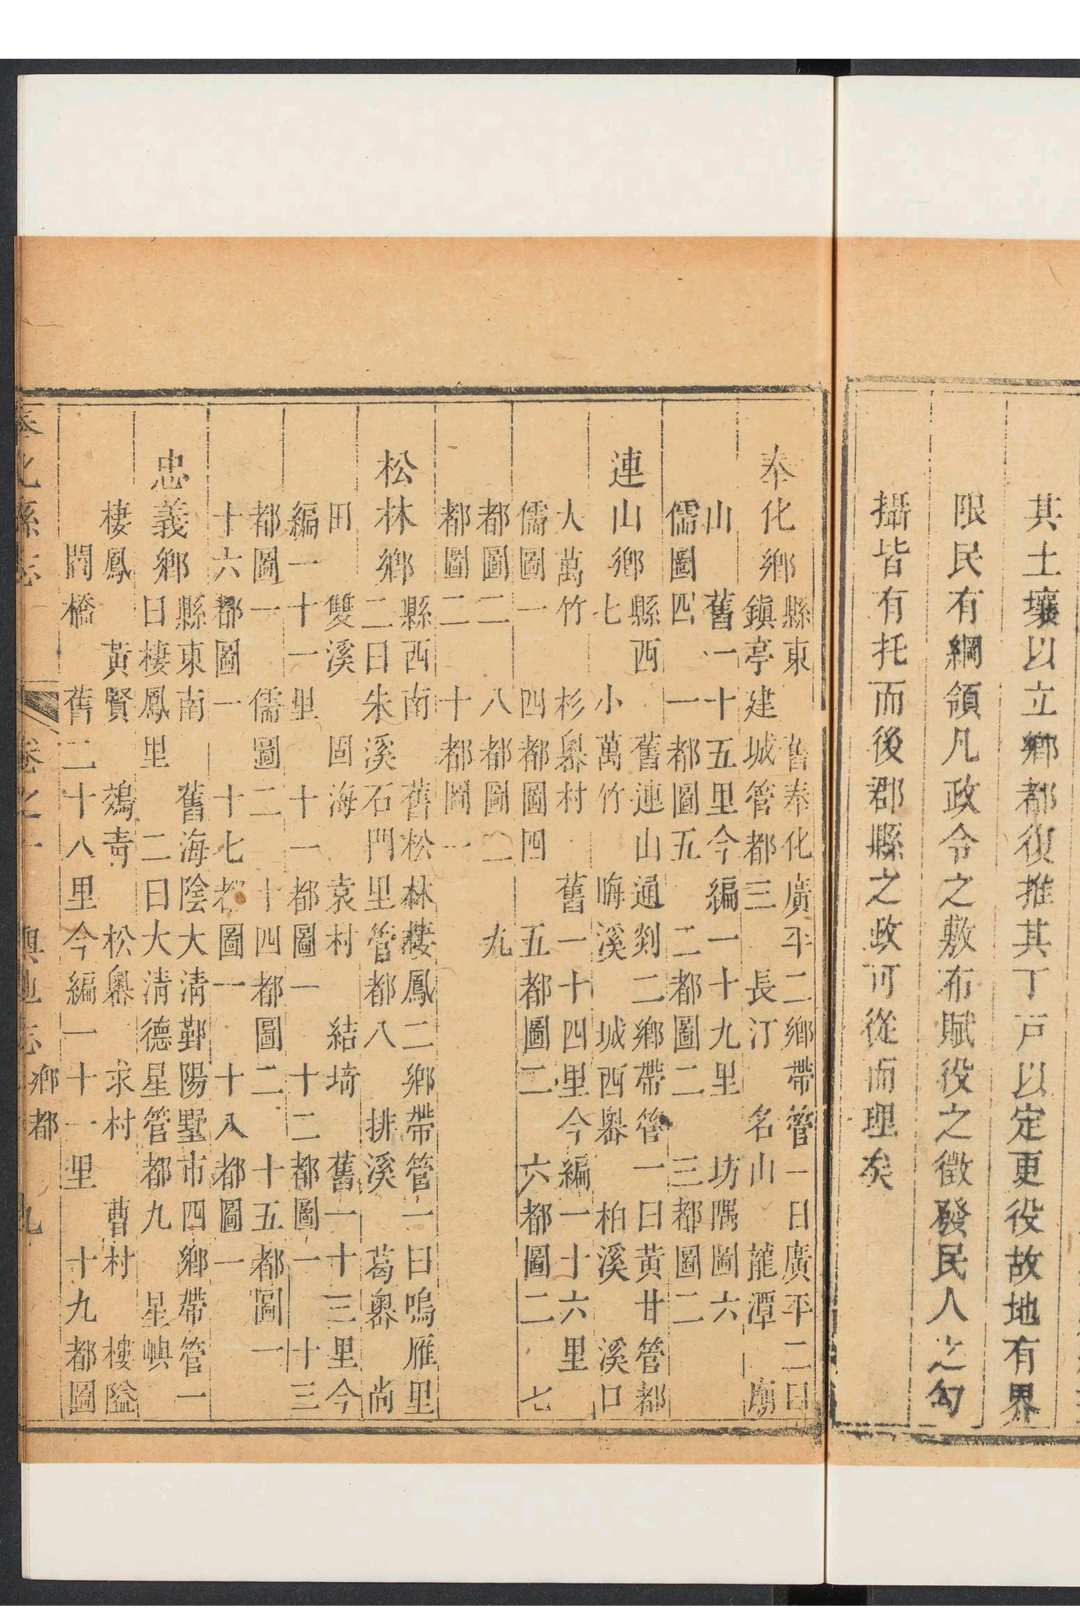 其土壤以立鄉都復推其丁戸以定更役故地有界
限民有綱領凡政令之敷布賦役之徵發民人之勾
攝皆有托而後郡縣之政可從而理矣
奉化鄉縣東　舊奉化廣平二鄉帶管一曰廣平二曰
鎮亭建城管都三　長汀　名山　龍潭　廟
山　舊一十五里今編一十九里　坊隅圖六
儒圖四　一都圖五　二都圖二　三都圖二
連山鄉縣西　舊連山通剡二鄉帶管一曰黃甘管都
七　小萬竹　晦溪　城西嶴　柏溪　溪口
大萬竹　杉嶴村　舊一十四里今編一十六里
儒圖一　四都圖四　五都圖二　六都圖二　七
都圖二　八都圖二　九
都圖二　十都圖一
松林鄉縣西南　舊松林棲鳳二鄉帶管一曰鳴雁里
二曰朱溪石門里管都八　排溪　葛嶴　尚
田　雙溪　固海　袁村　結埼　舊一十三里今
編一十一里　十一都圖一　十二都圖一　十三
都圖一　儒圖二　十四都圖二　十五都圖一
十六都圖一　十七都圖一　十八都圖一
忠義鄉縣東南　舊海陰大淸鄞陽墅市四鄉帶管一
曰棲鳳里　二曰大淸德星管都九　星嶼
棲鳳　黃賢　鴉靑　松嶴　求村　曹村　樓隘
閻橋　舊二十八里今編一十一里　十九都圖
奉化縣志　卷之一　輿地志　鄉都　九